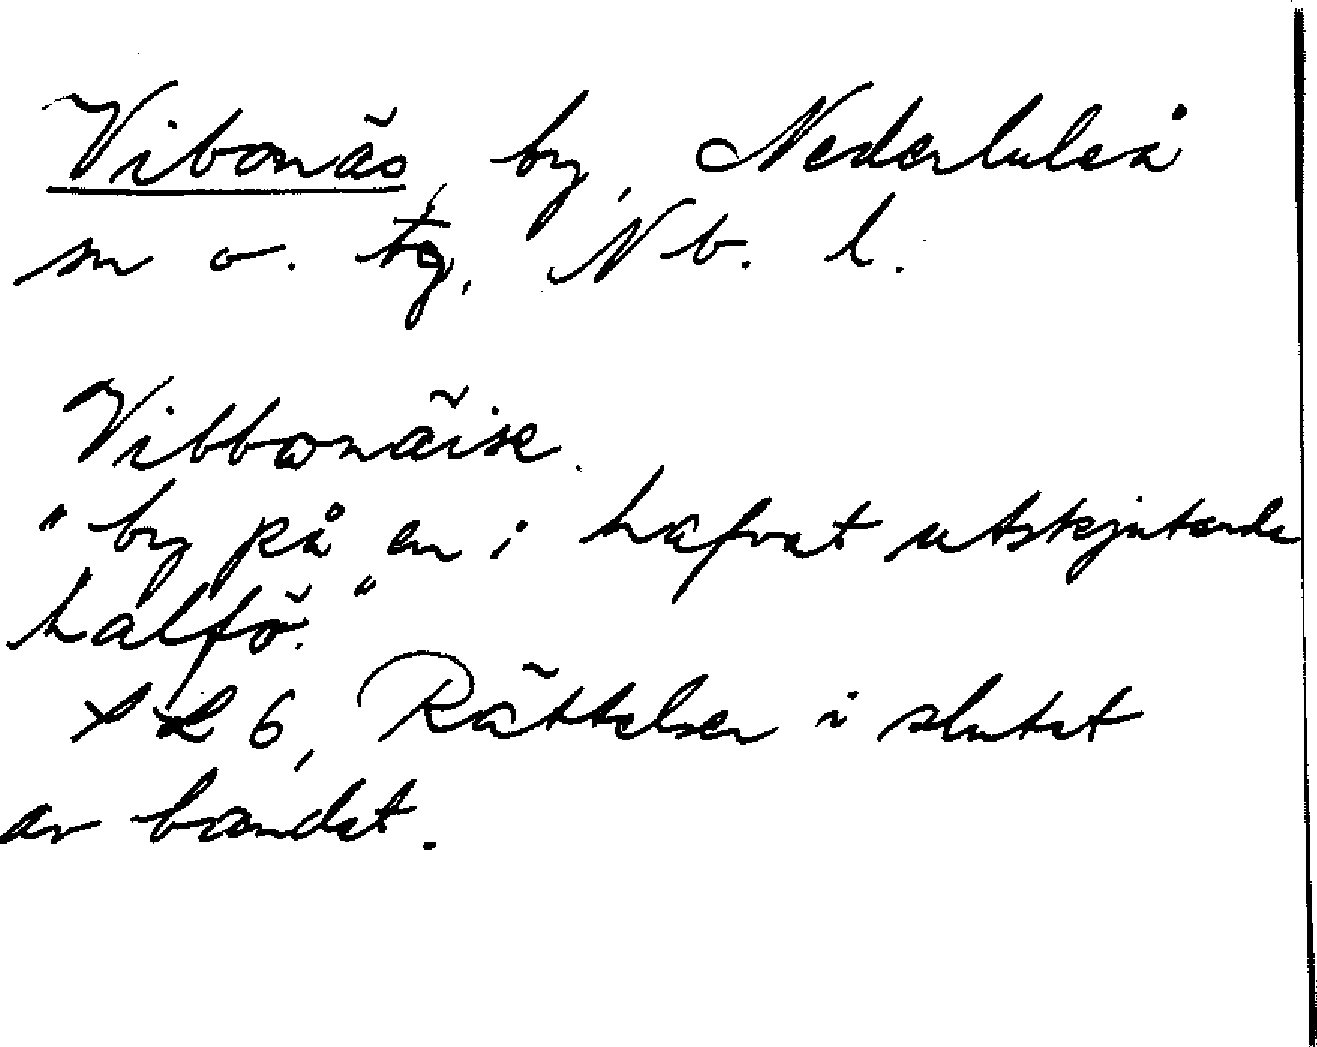 Vibonäs, by, Nederluleå
sn o. tg, Nb. l.
Vibbonäise.
"by på en i hafvet utskjutande
halfö."
XL 6, Rättelser i slutet
av bandet.